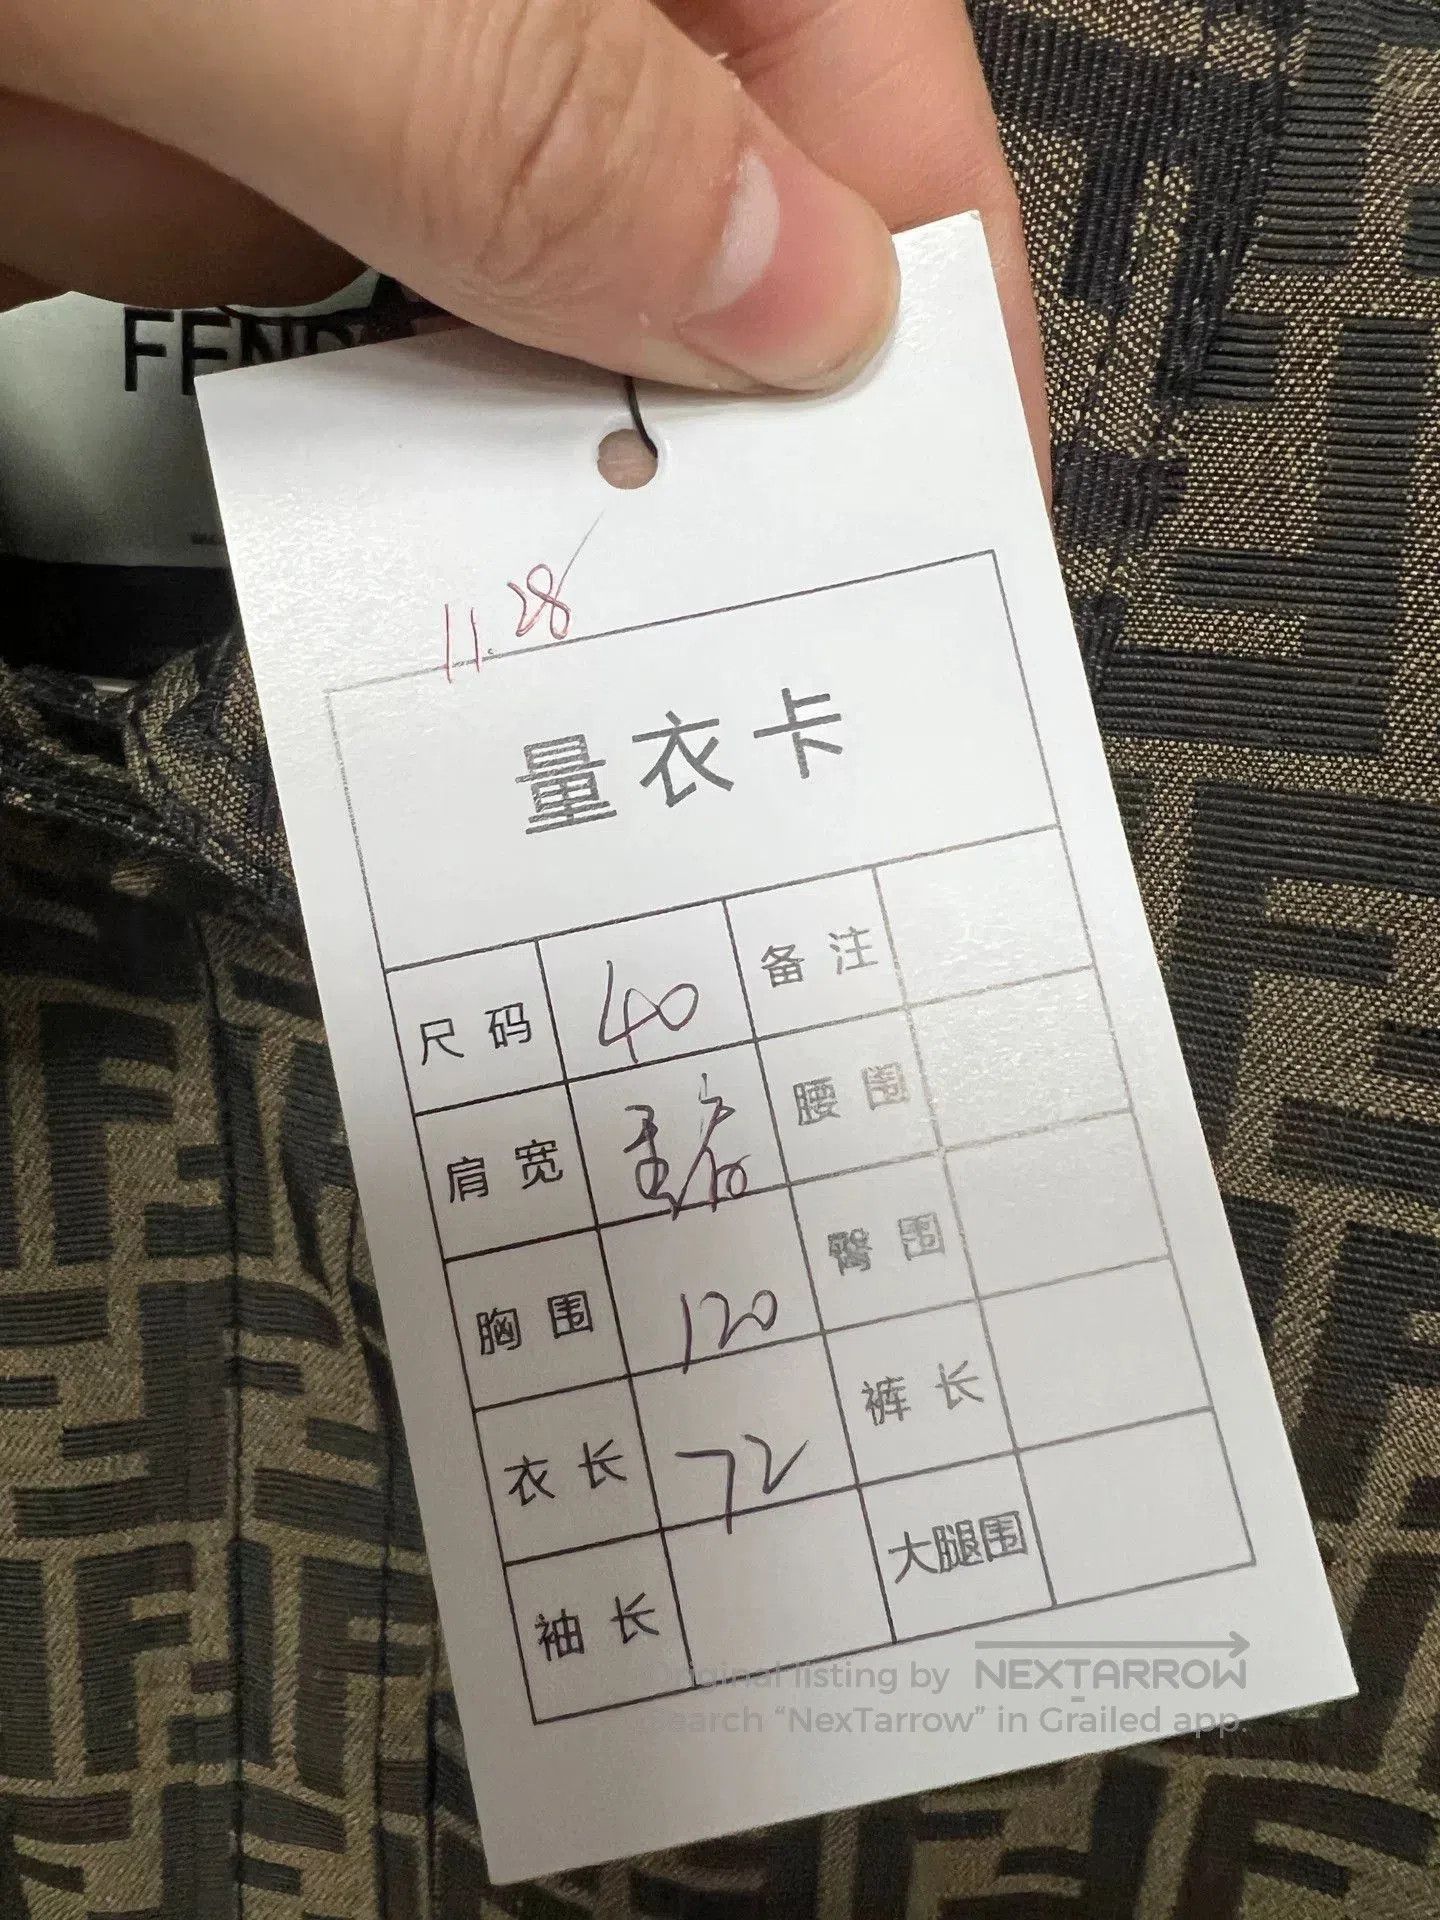 FEND
11.28
量衣卡
尺码 40 备注
肩宽 腰围
胸围 120 臀围
衣长 72 裤长
袖长 大腿围
Original listing by NEXTARROW
Search “NexTarrow” in Grailed app.